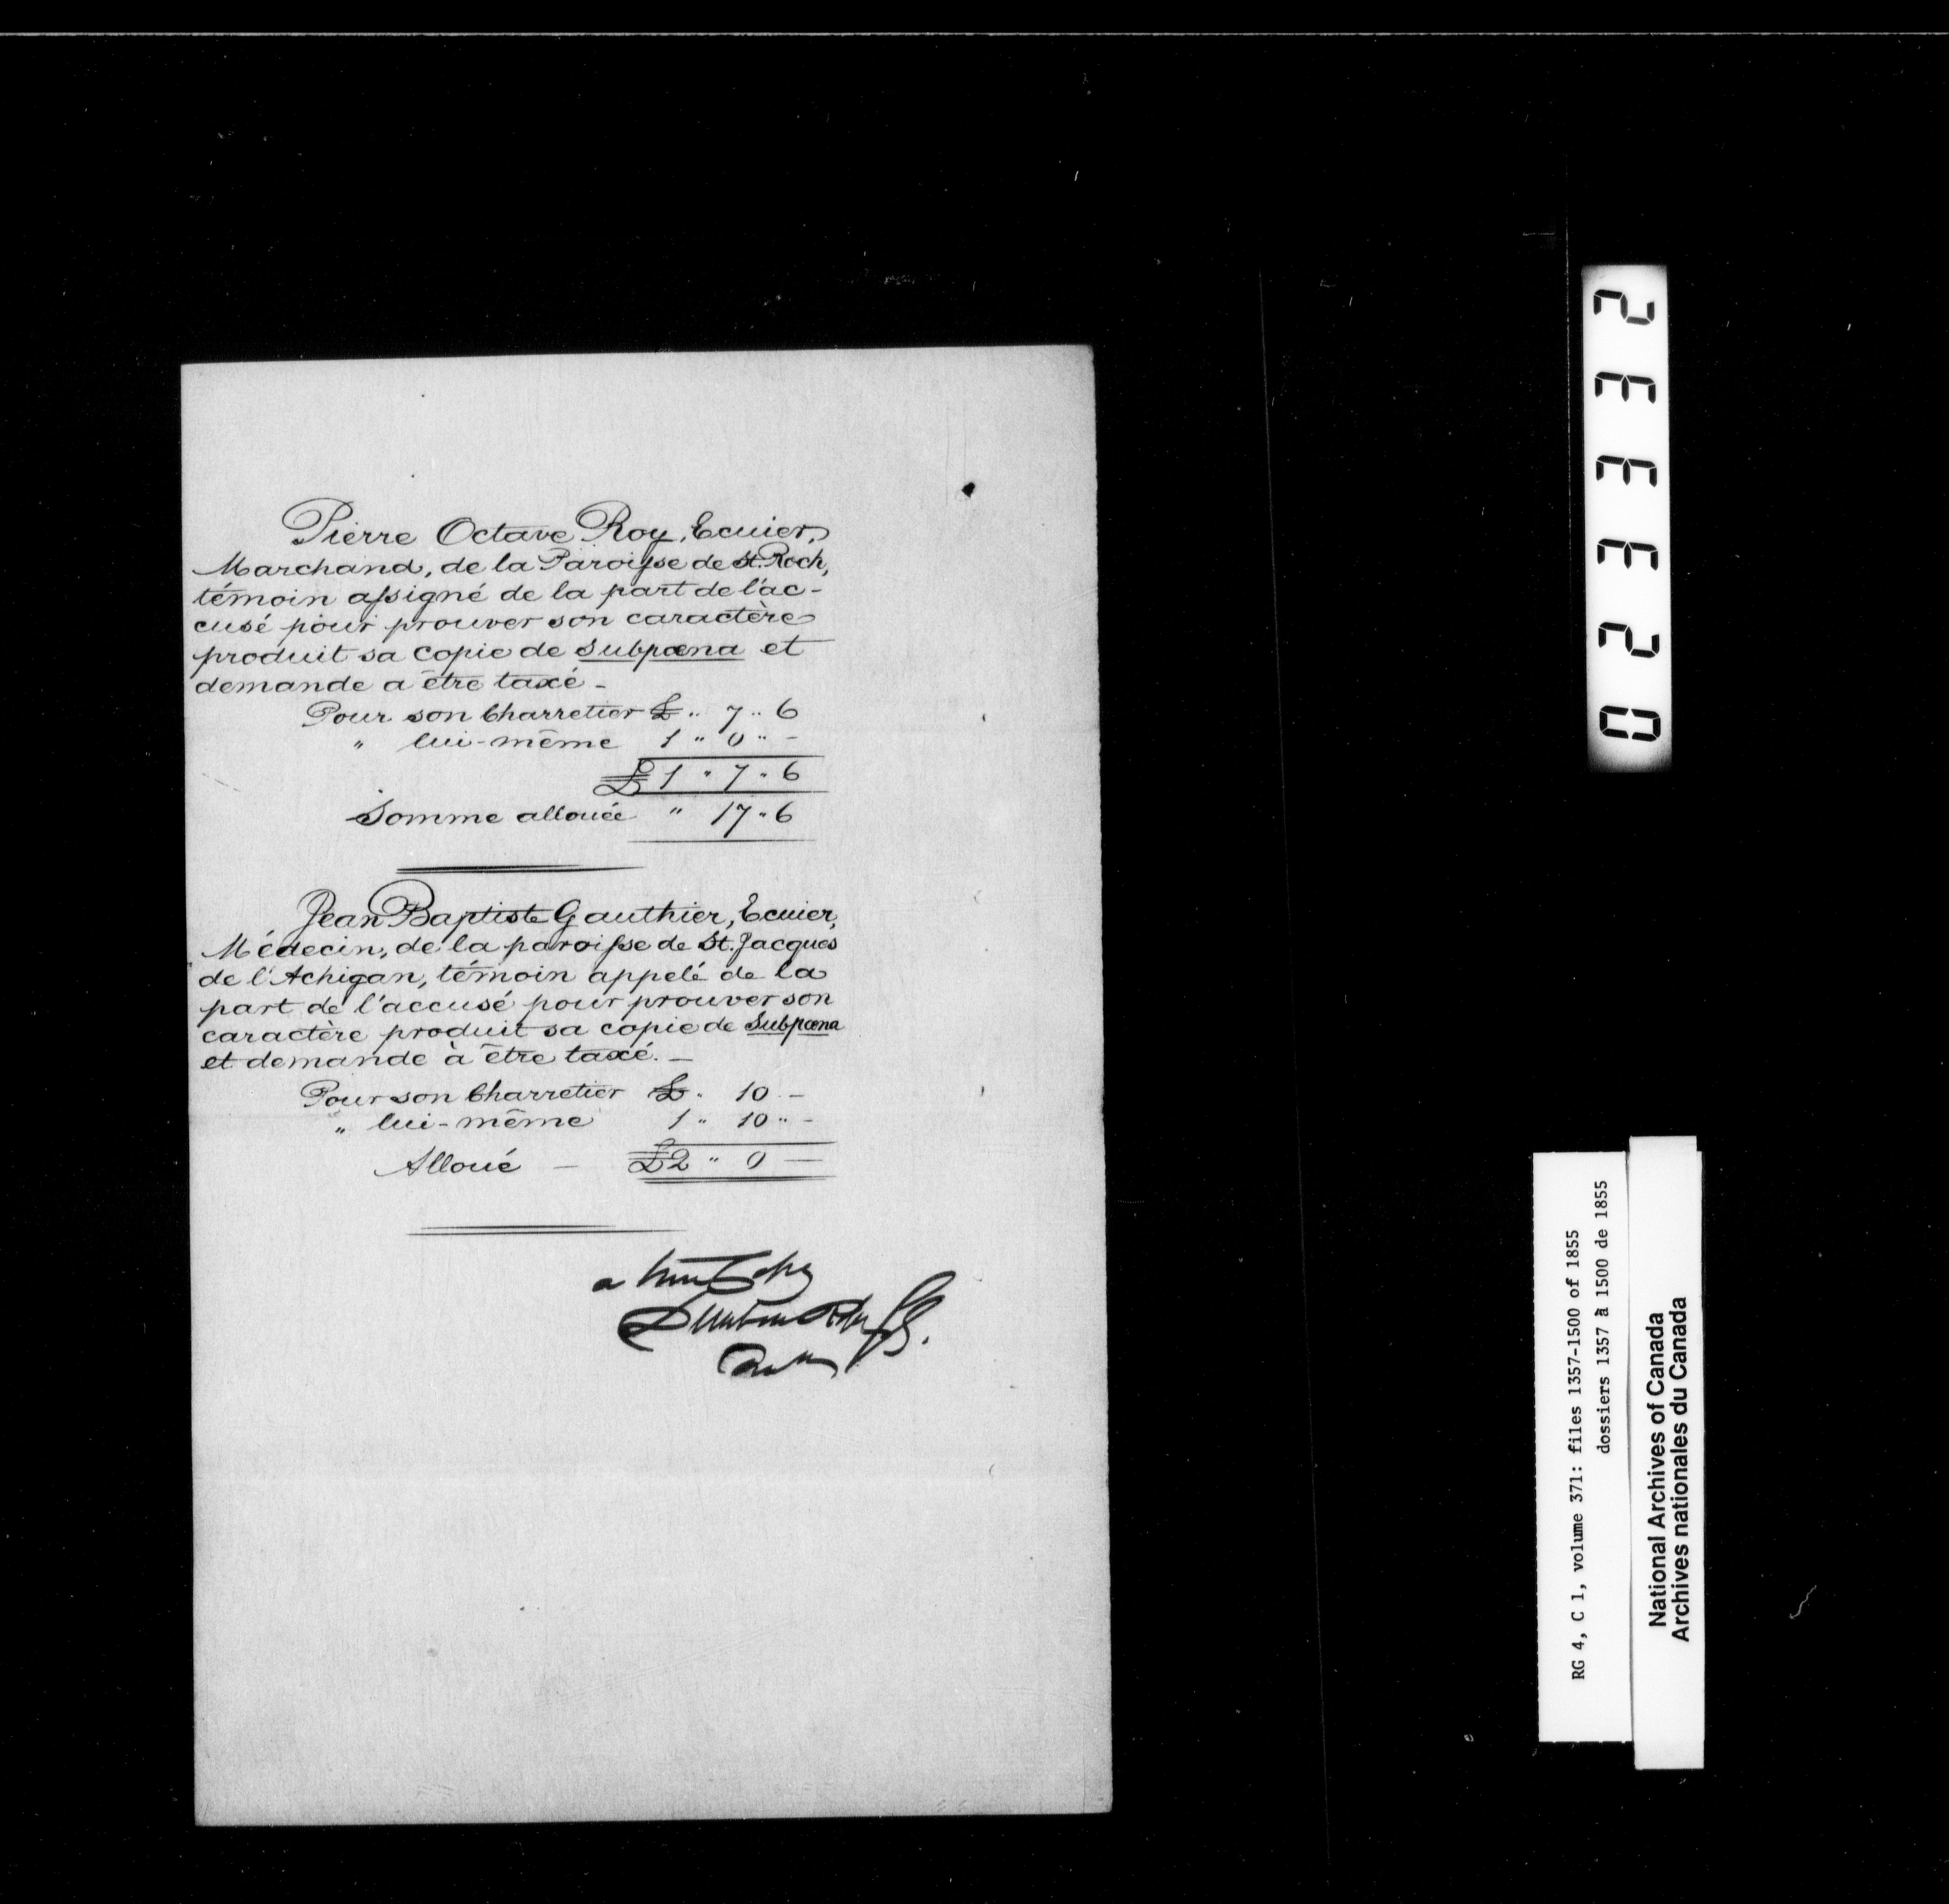 Pierre Octave Roy, Ecuier,
Marchand, de la Paroisse de St. Roch,
témoin assigné de la part de l'ac-
cusé pour prouver son caractère
produit sa copie de Subpœna et
demande a être taxé -
Pour son Charretier £ " 7 " 6
" lui-même 1 " 0 " -
£ 1 " 7 " 6
Somme allouée " 17 " 6
Jean Baptiste Gauthier, Ecuier,
Médecin, de la paroisse de St. Jacques
de l'Achigan, témoin appelé de la
part de l'accusé pour prouver son
caractère produit sa copie de Subpœna
et demande à être taxé. -
Pour son Charretier £ " 10 -
" lui-même 1 " 10 " -
Alloué - £2 " 0 -
a true Copy
023332
RG 4, C 1, volume 371: files 1357-1500 of 1855
dossiers 1357 à 1500 de 1855
National Archives of Canada
Archives nationales du Canada